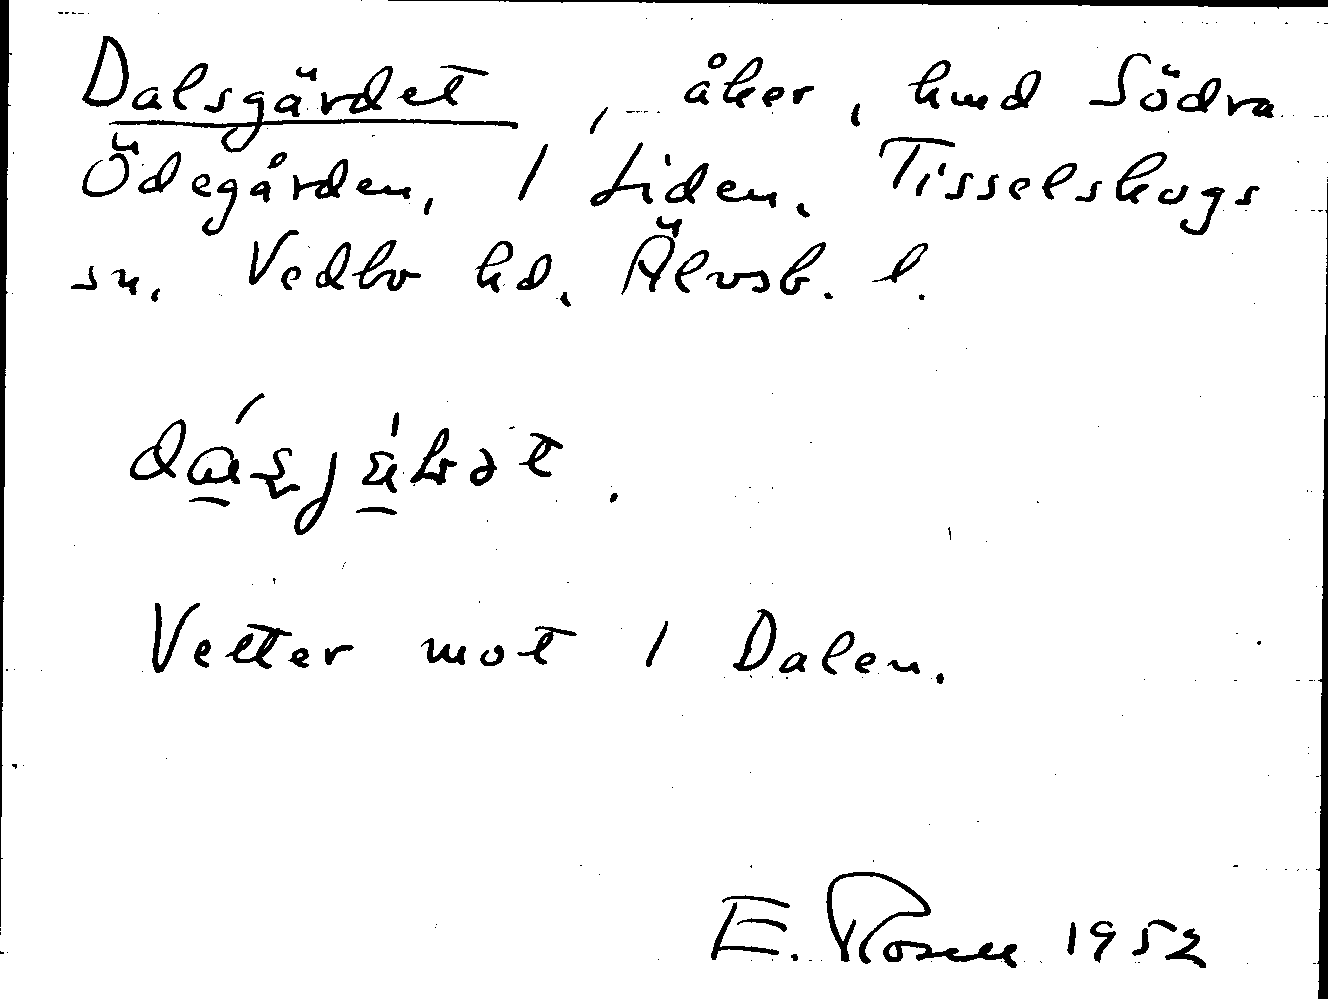 Dalsgärdet, åker, hmd Södra
Ödegården, 1 Liden. Tisselskogs
sn. Vedbo hd. Älvsb. l.
Vetter mot 1 Dalen.
E. Rosell 1952